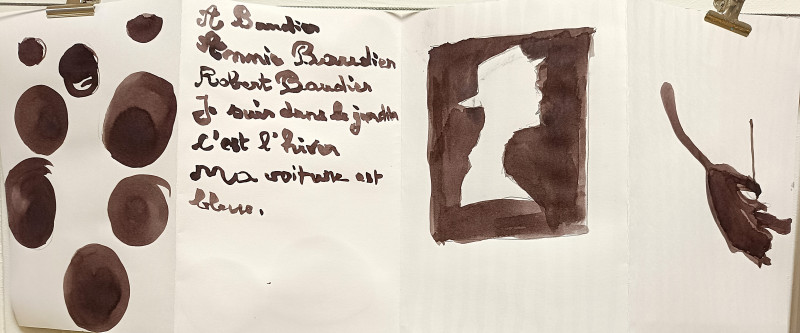 A Baudier
Annie Baudier
Robert Baudier
Je suis dans le jardin
c'est l'hiver
Ma voiture est
bleue.